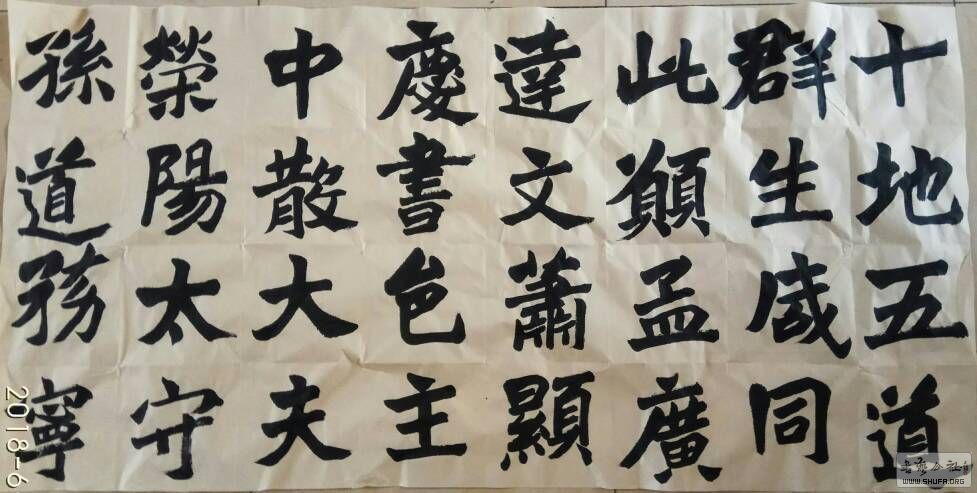 十地五道
群生咸同
此願孟廣
達文蕭顯
慶書邑主
中散大夫
榮陽太守
孫道務寧
2018-6
WWW.SHUFA.ORG